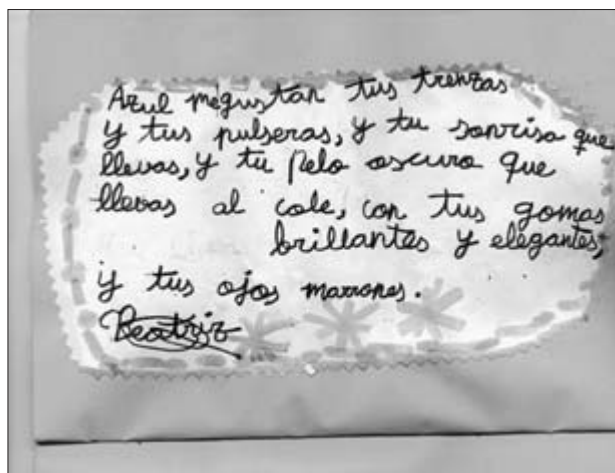 Azul megustan tus trenzas
y tus pulseras, y tu sonrisa que
llevas, y tu pelo oscuro que
llevas al cole, con tus gomas
brillantes y elegantes,
y tus ojos marrones.
Beatriz